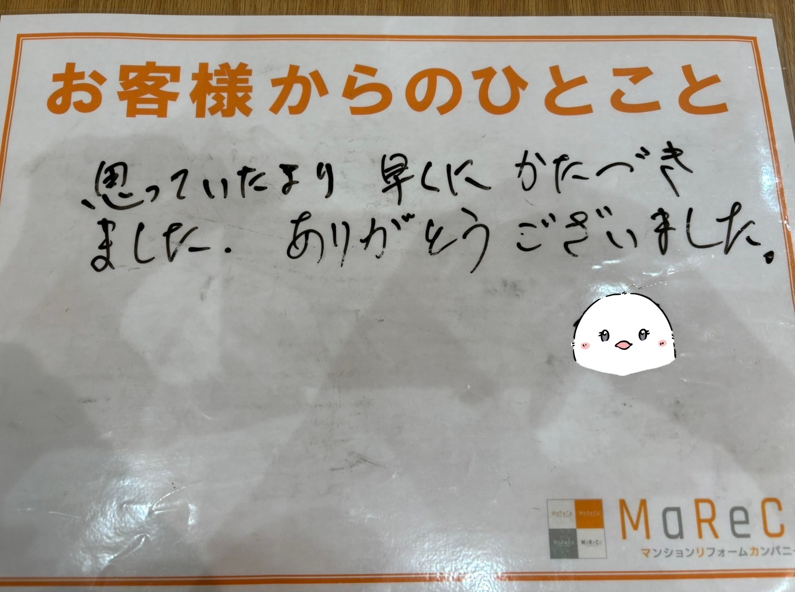 お客様からのひとこと
思っていたより 早くに かたづき
ました. ありがとうございました。
MaReC
マンションリフォームカンパニー